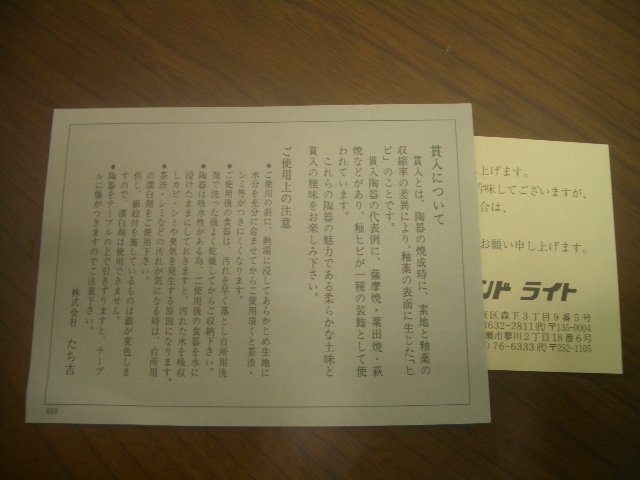 貫入について
貫入とは、陶器の焼成時に、素地と釉薬の
収縮率の差異により、釉薬の表面に生じた「ヒ
ビ」のことです。
貫入陶器の代表例に、薩摩焼・粟田焼・萩
焼などがあり、釉ヒビが一種の装飾として使
われています。
これらの陶器の魅力である柔らかな土味と
貫入の雅味をお楽しみ下さい。
ご使用上の注意
●ご使用の前に、熱湯に浸してあらかじめ生地に
水分を充分に含ませてからご使用頂くと茶渋・
シミ等がつきにくくなります。
●ご使用後の食器は、汚れを早く落とし台所用洗
剤で洗った後よく乾燥してからご収納下さい。
●陶器は吸水性がある為、ご使用後の食器を水に
浸けたままにしておきますと、汚れた水を吸収
しカビ・シミや臭気を発生する原因になります。
●茶渋・シミなどの汚れが気になる時は、台所用
の漂白剤をご使用下さい。
但し、銀絵付を施しているものは銀が変色しま
すので、漂白剤は使用できません。
●陶器をテーブルの上で引きずりますと、テーブ
ルに傷がつきますのでご注意下さい。
株式会社 たち吉
上げます。
吟味してございますが、
合は、
お願い申し上げます。
ンド ライト
区森下3丁目9番5号
4632-2811㈹〒135-0004
瀬市蓼川2丁目18番6号
76-6333㈹〒252-1105